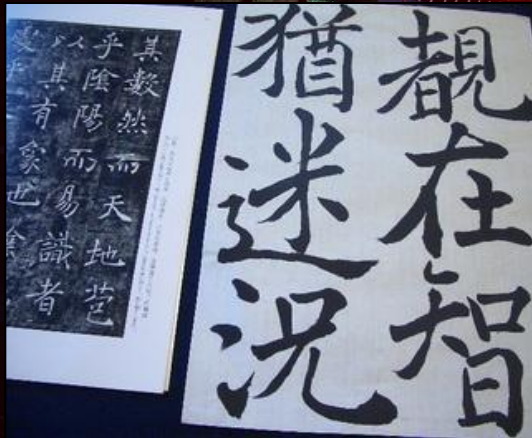 覩在智
猶迷況
其數然而天地苞
乎陰陽而易識者
以其有象也陰